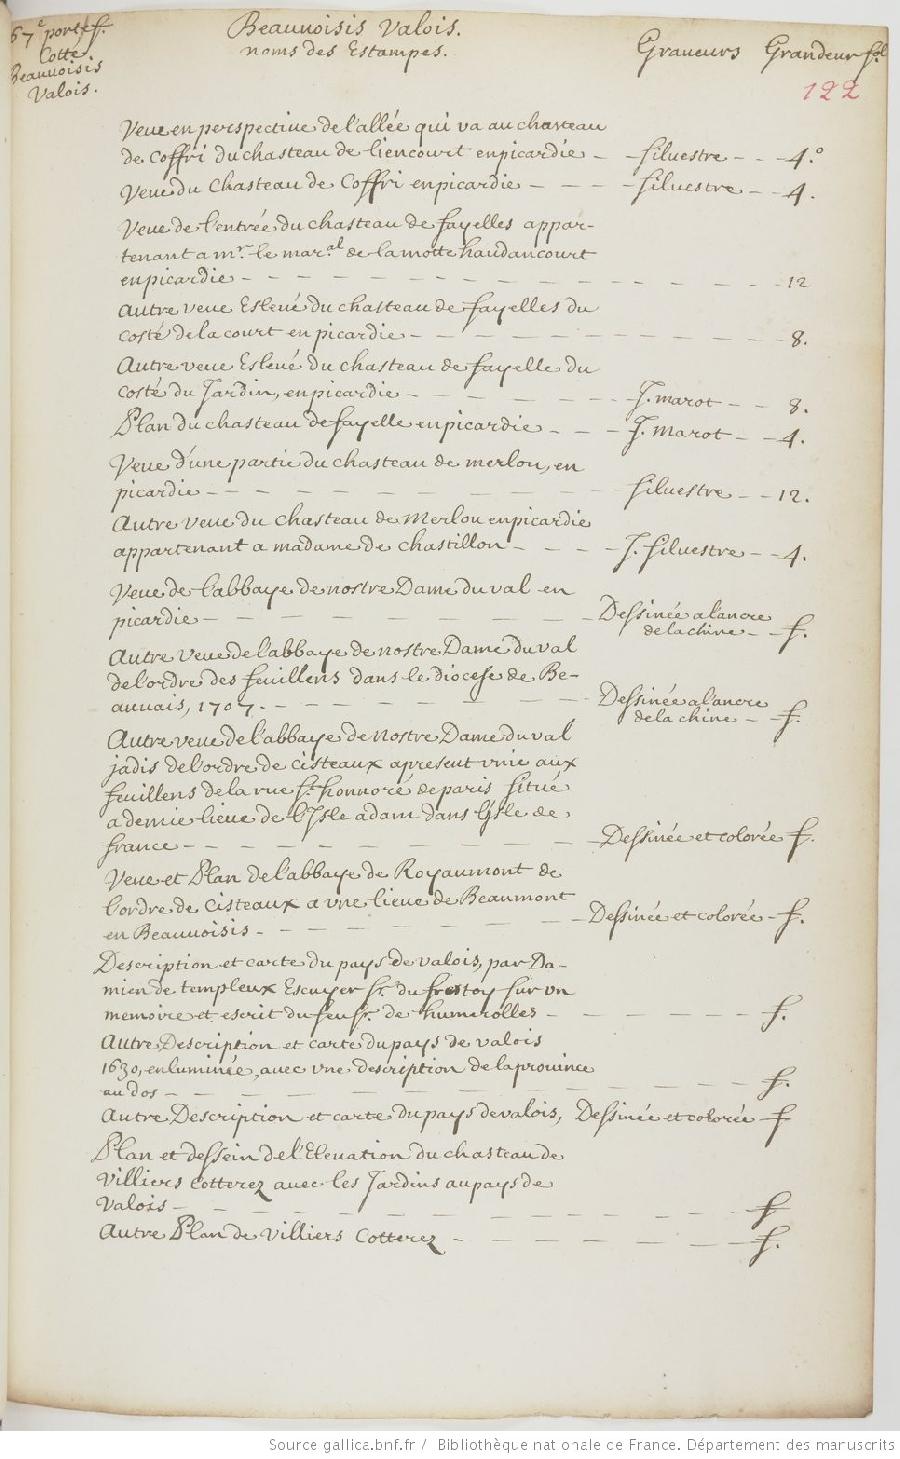 67e portef.
Cotte
Beauuoisis
Valois.
Beauuoisis Valois.
noms des Estampes.
Graueurs Grandeur
122
Veue en perspectiue de l'allée qui va au chasteau
de Coffri du chasteau de liencourt en picardie - - silvestre - - - 4.°
Veue du Chasteau de Coffri en picardie - - - - silvestre - - 4.
Veue de l'entrée du chasteau de fayelles appar-
tenant a mr. le mar.al de la motte haudancourt
en picardie - - - - - - - - - - 12
autre veue Esleué du chasteau de fayelles du
costé de la court en picardie - - - - - - - - 8.
Autre veue Esleué du chasteau de fayelle du
costé du Jardin, en picardie - - - - - J. marot - - 8.
Plan du chasteau de fayelle en picardie - - - J. Marot - - 4.
Veue d'une partie du chasteau de merlou, en
picardie - - - - - - - silvestre - - 12.
Autre veue du chasteau de Merlou en picardie
appartenant a madame de Chastillon - - - - J. silvestre - - 4.
Veue de l'abbaye de nostre Dame du val en
picardie - - - - - - - Dessinée a l'ancre
de la chine - - f.
Autre Veue de l'abbaye de nostre Dame du val
de l'ordre des feuillens dans le diocese de Be-
auuais, 1707. - - - - - - Dessinée a l'ancre
de la chine - f.
Autre veue de l'abbaye de Nostre Dame du val
jadis de l'ordre de Cisteaux apresent vnie aux
feuillens de la rue st. honnoré de paris situé
a demie lieue de l'Isle adam dans l'isle de
france - - - - - - - Dessinée et colorée f.
Veue et Plan de l'abbaye de Royaumont de
l'ordre de Cisteaux a vne lieue de Beaumont
en Beauuoisis - - - - - - Dessinée et colorée - f.
Description et carte du pays de valois, par Da-
mien de templeux Escuyer sr. du frestoy sur vn
memoire et escrit du feu sr. de humerolles - - - - - f.
Autre Description et carte du pays de valois
1630, enluminée, auec vne description de la prouince
au dos - - - - - - - - - f.
Autre Description et carte du pays de valois, Dessinée et colorée - f
Plan et dessein de l'Eleuation du chasteau de
Villiers Cotterez auec les Jardins au pays de
Valois - - - - - - - - - f
Autre Plan de Villiers Cotterez - - - - - f.
Source gallica.bnf.fr / Bibliothèque nationale de France. Département des manuscrits